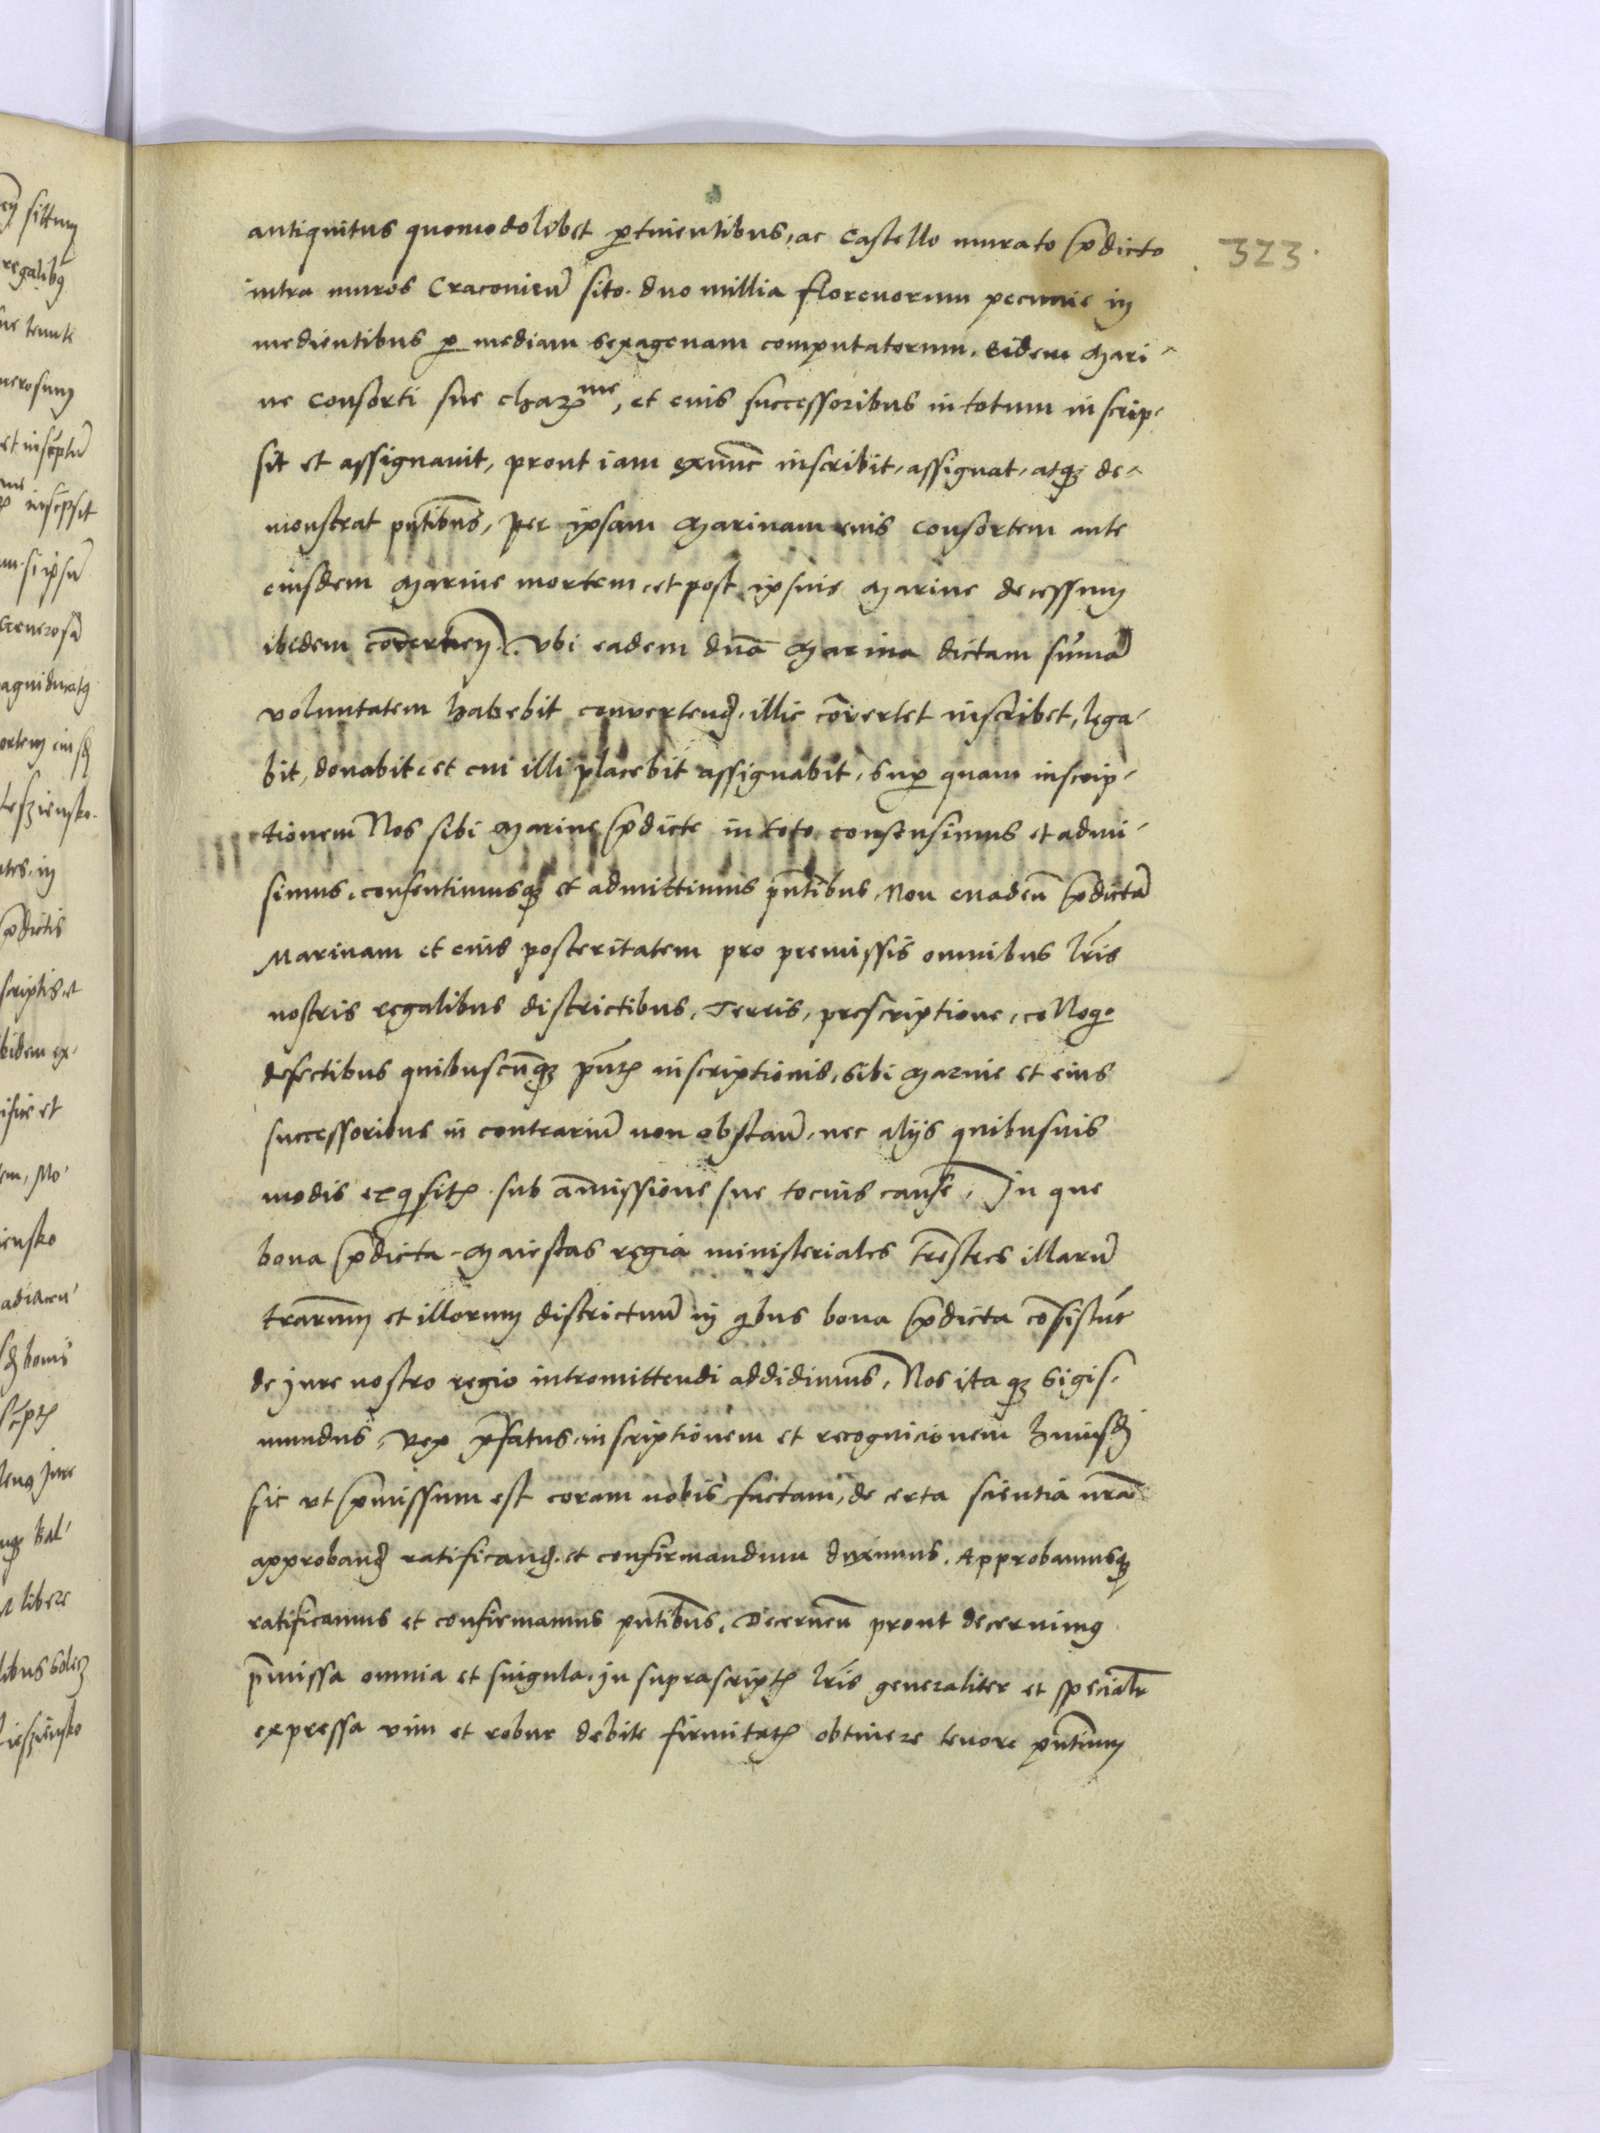 antiquitus quomodolibet ptinentibus, ac Castello murato pdicto
. 323.
intra muros Cracovien sito. duo millia florenorum pecunie in
medientibus p mediam sexagenam computatorum. Eidem Mari-
ne Consorti sue char me, et eius successoribus in totum inscrip-
sit et assignavit, prout iam exnunc inscribit, assignat, atq de-
monstrat pntibus, per ipsam Marinam eius consortem ante
eiusdem Marine mortem, et post ipsius Marine decessum
ibedem converten. Ubi eadem dna Marina dictam suma
voluntatem habebit convertend, illic covertet inscribet, lega-
bit, donabit, et cui illi placebit assignabit, sup quam inscrip-
tionem Nos sibi Marine pdicte in toto consensimus et admi-
simus, consentimusq et admittimus pntibus, Non evaden pdicta
Marinam et eius posteritatem pro premissis omnibus lris
nostris regalibus districtibus, Terris, prescriptione, colloq
defectibus quibuscunq pnt inscriptionis, sibi Marine et eius
successoribus in contrariu non obstan, nec alijs quibusvis
modis exqsit sub amissione sue tocius cause, In que
bona pdicta Maiestas regia ministeriales trestres illaru
trarum et illorum districtuu in qbus bona pdicta cosistut
de jure nostro regio intromittendi addidimus, Nos itaq Sigis-
mundus, rex pfatus, inscriptionem et recognicionem Hmusd
sic ut pmissum est coram nobis factam, de certa scientia nra
approband ratificand et confirmandum duximus. Approbamusq
ratificamus et confirmamus pntibus, Decernen prout decernimus
pmissa omnia et singula in suprascript lris generaliter et specialr
expressa vim et robur debite firmitat obtinere tenore pntium